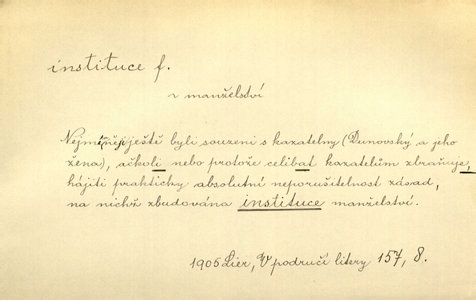 instituce f.
~ manželství
Nejméněji ještě byli souzeni s kazatelny (Dunovský a jeho
žena), ačkoli nebo protože celibat kazatelům zbraňuje,
hájiti prakticky absolutní neporušitelnost zásad,
na nichž zbudována instituce manželství.
1905 Lier, V područí litery 157, 8.